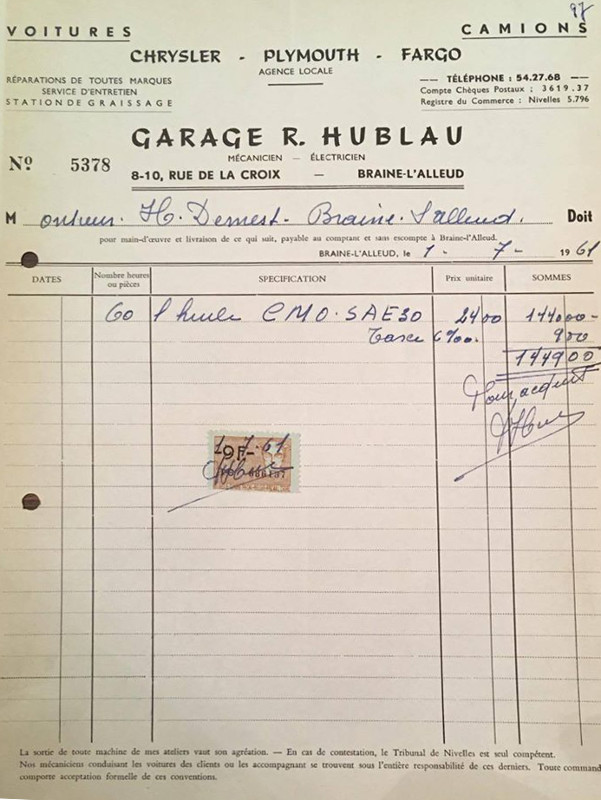 97
VOITURES CAMIONS
CHRYSLER - PLYMOUTH - FARGO
AGENCE LOCALE
RÉPARATIONS DE TOUTES MARQUES
SERVICE D'ENTRETIEN
STATION DE GRAISSAGE
TÉLÉPHONE : 54.27.68
Compte Chèques Postaux : 3619.37
Registre du Commerce : Nivelles 5.796
GARAGE R. HUBLAU
MÉCANICIEN — ÉLECTRICIEN
Nº 5378
8-10, RUE DE LA CROIX — BRAINE-L'ALLEUD
Monsieur. H. Braine-l'alleud. Doit
pour main-d'œuvre et livraison de ce qui suit, payable au comptant et sans escompte à Braine-l'Alleud.
BRAINE-L'ALLEUD, le 1 - 7 - 1961
DATES Nombre heures ou pièces SPECIFICATION Prix unitaire SOMMES
60 l huile CMO. SAE30 2400 144000-
Taxe 6‰. 900
144900
Pour acquit
1.7.61
9F-
La sortie de toute machine de mes ateliers vaut son agréation. — En cas de contestation, le Tribunal de Nivelles est seul compétent.
Nos mécaniciens conduisant les voitures des clients ou les accompagnant se trouvent sous l'entière responsabilité de ces derniers. Toute command
comporte acceptation formelle de ces conventions.